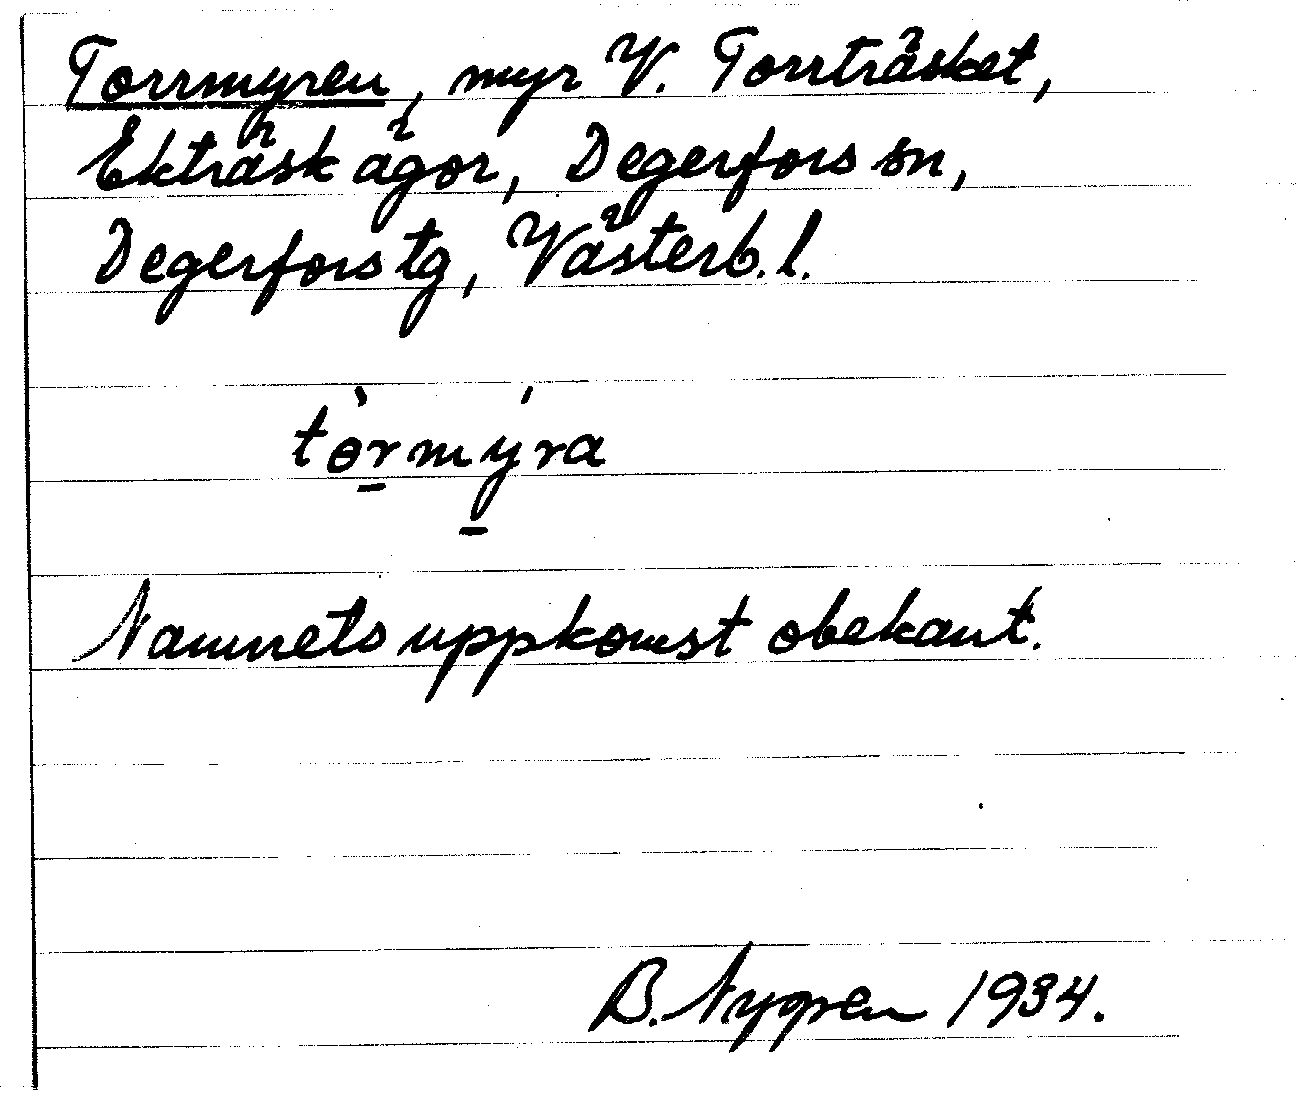 Torrmyren, myr V. Torrträsket,
Ekträsk ägor, Degerfors sn,
Degerfors tg, Västerb. l.
tòrmýra
Namnets uppkomst obekant.
B. Nygren 1934.